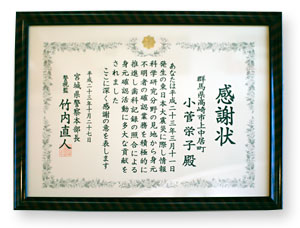 感謝状
群馬県高崎市上中居町
小菅栄子殿
あなたは平成二十三年三月十一日
発生の東日本大震災に際し情報
科学研究分野の見地から身元
不明者の確認業務を積極的に
推進し歯科記録の照合による
身元確認活動に多大な貢献を
されました
ここに深く感謝の意を表します
平成二十三年十月二十七日
宮城県警察本部長
警視監
竹内直人